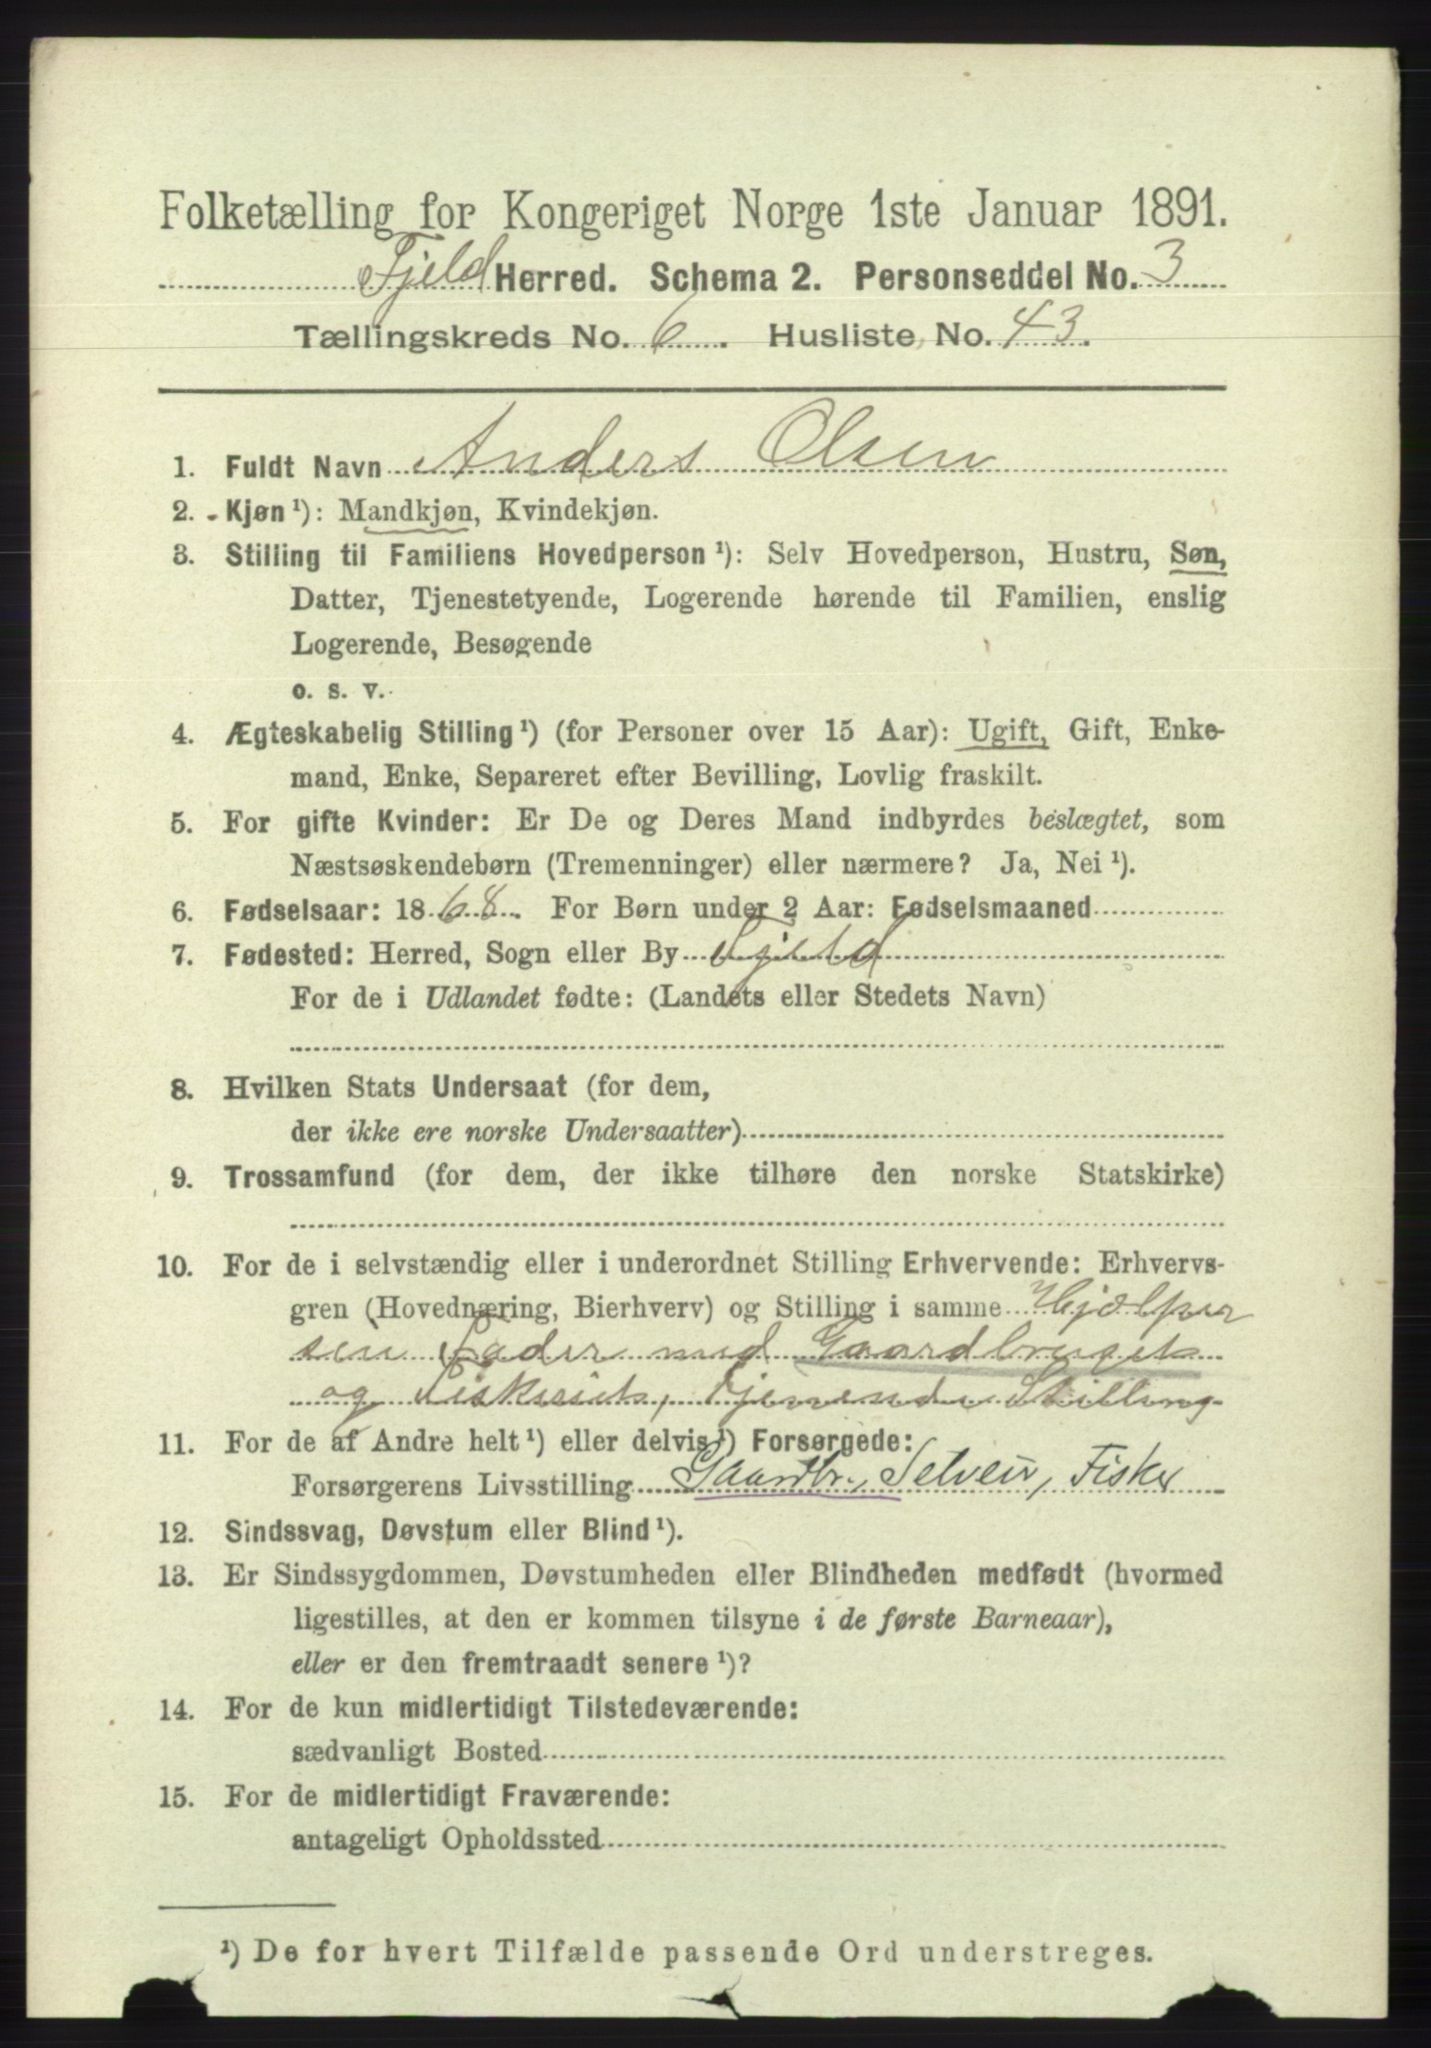 Folketælling for Kongeriget Norge 1ste Januar 1891.
Fjeld Herred. Schema 2. Personseddel No. 3
Tællingskreds No. 6. Husliste No. 43.
1. Fuldt Navn Anders Olsen
2. Kjøn ¹): Mandkjøn, Kvindekjøn.
3. Stilling til Familiens Hovedperson ¹): Selv Hovedperson, Hustru, Søn,
Datter, Tjenestetyende, Logerende hørende til Familien, enslig
Logerende, Besøgende
o. s. v.
4. Ægteskabelig Stilling ¹) (for Personer over 15 Aar): Ugift, Gift, Enke-
mand, Enke, Separeret efter Bevilling, Lovlig fraskilt.
5. For gifte Kvinder: Er De og Deres Mand indbyrdes beslægtet, som
Næstsøskendebørn (Tremenninger) eller nærmere? Ja, Nei ¹).
6. Fødselsaar: 1868. For Børn under 2 Aar: Fødselsmaaned
7. Fødested: Herred, Sogn eller By Fjeld
For de i Udlandet fødte: (Landets eller Stedets Navn)
8. Hvilken Stats Undersaat (for dem,
der ikke ere norske Undersaatter)
9. Trossamfund (for dem, der ikke tilhøre den norske Statskirke)
10. For de i selvstændig eller i underordnet Stilling Erhvervende: Erhvervs-
gren (Hovednæring, Bierhverv) og Stilling i samme Hjælper
sin Fader med Gaardbruget
og Fiskeriet, tjenende Stilling
11. For de af Andre helt ¹) eller delvis ¹) Forsørgede:
Forsørgerens Livsstilling Gaardbr., Selveier, Fisker
12. Sindssvag, Døvstum eller Blind ¹).
13. Er Sindssygdommen, Døvstumheden eller Blindheden medfødt (hvormed
ligestilles, at den er kommen tilsyne i de første Barneaar),
eller er den fremtraadt senere ¹)?
14. For de kun midlertidigt Tilstedeværende:
sædvanligt Bosted
15. For de midlertidigt Fraværende:
antageligt Opholdssted
¹) De for hvert Tilfælde passende Ord understreges.